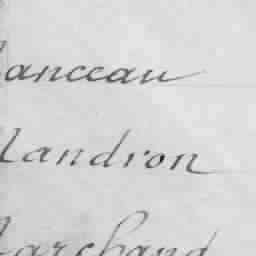 anceau
landron
archand